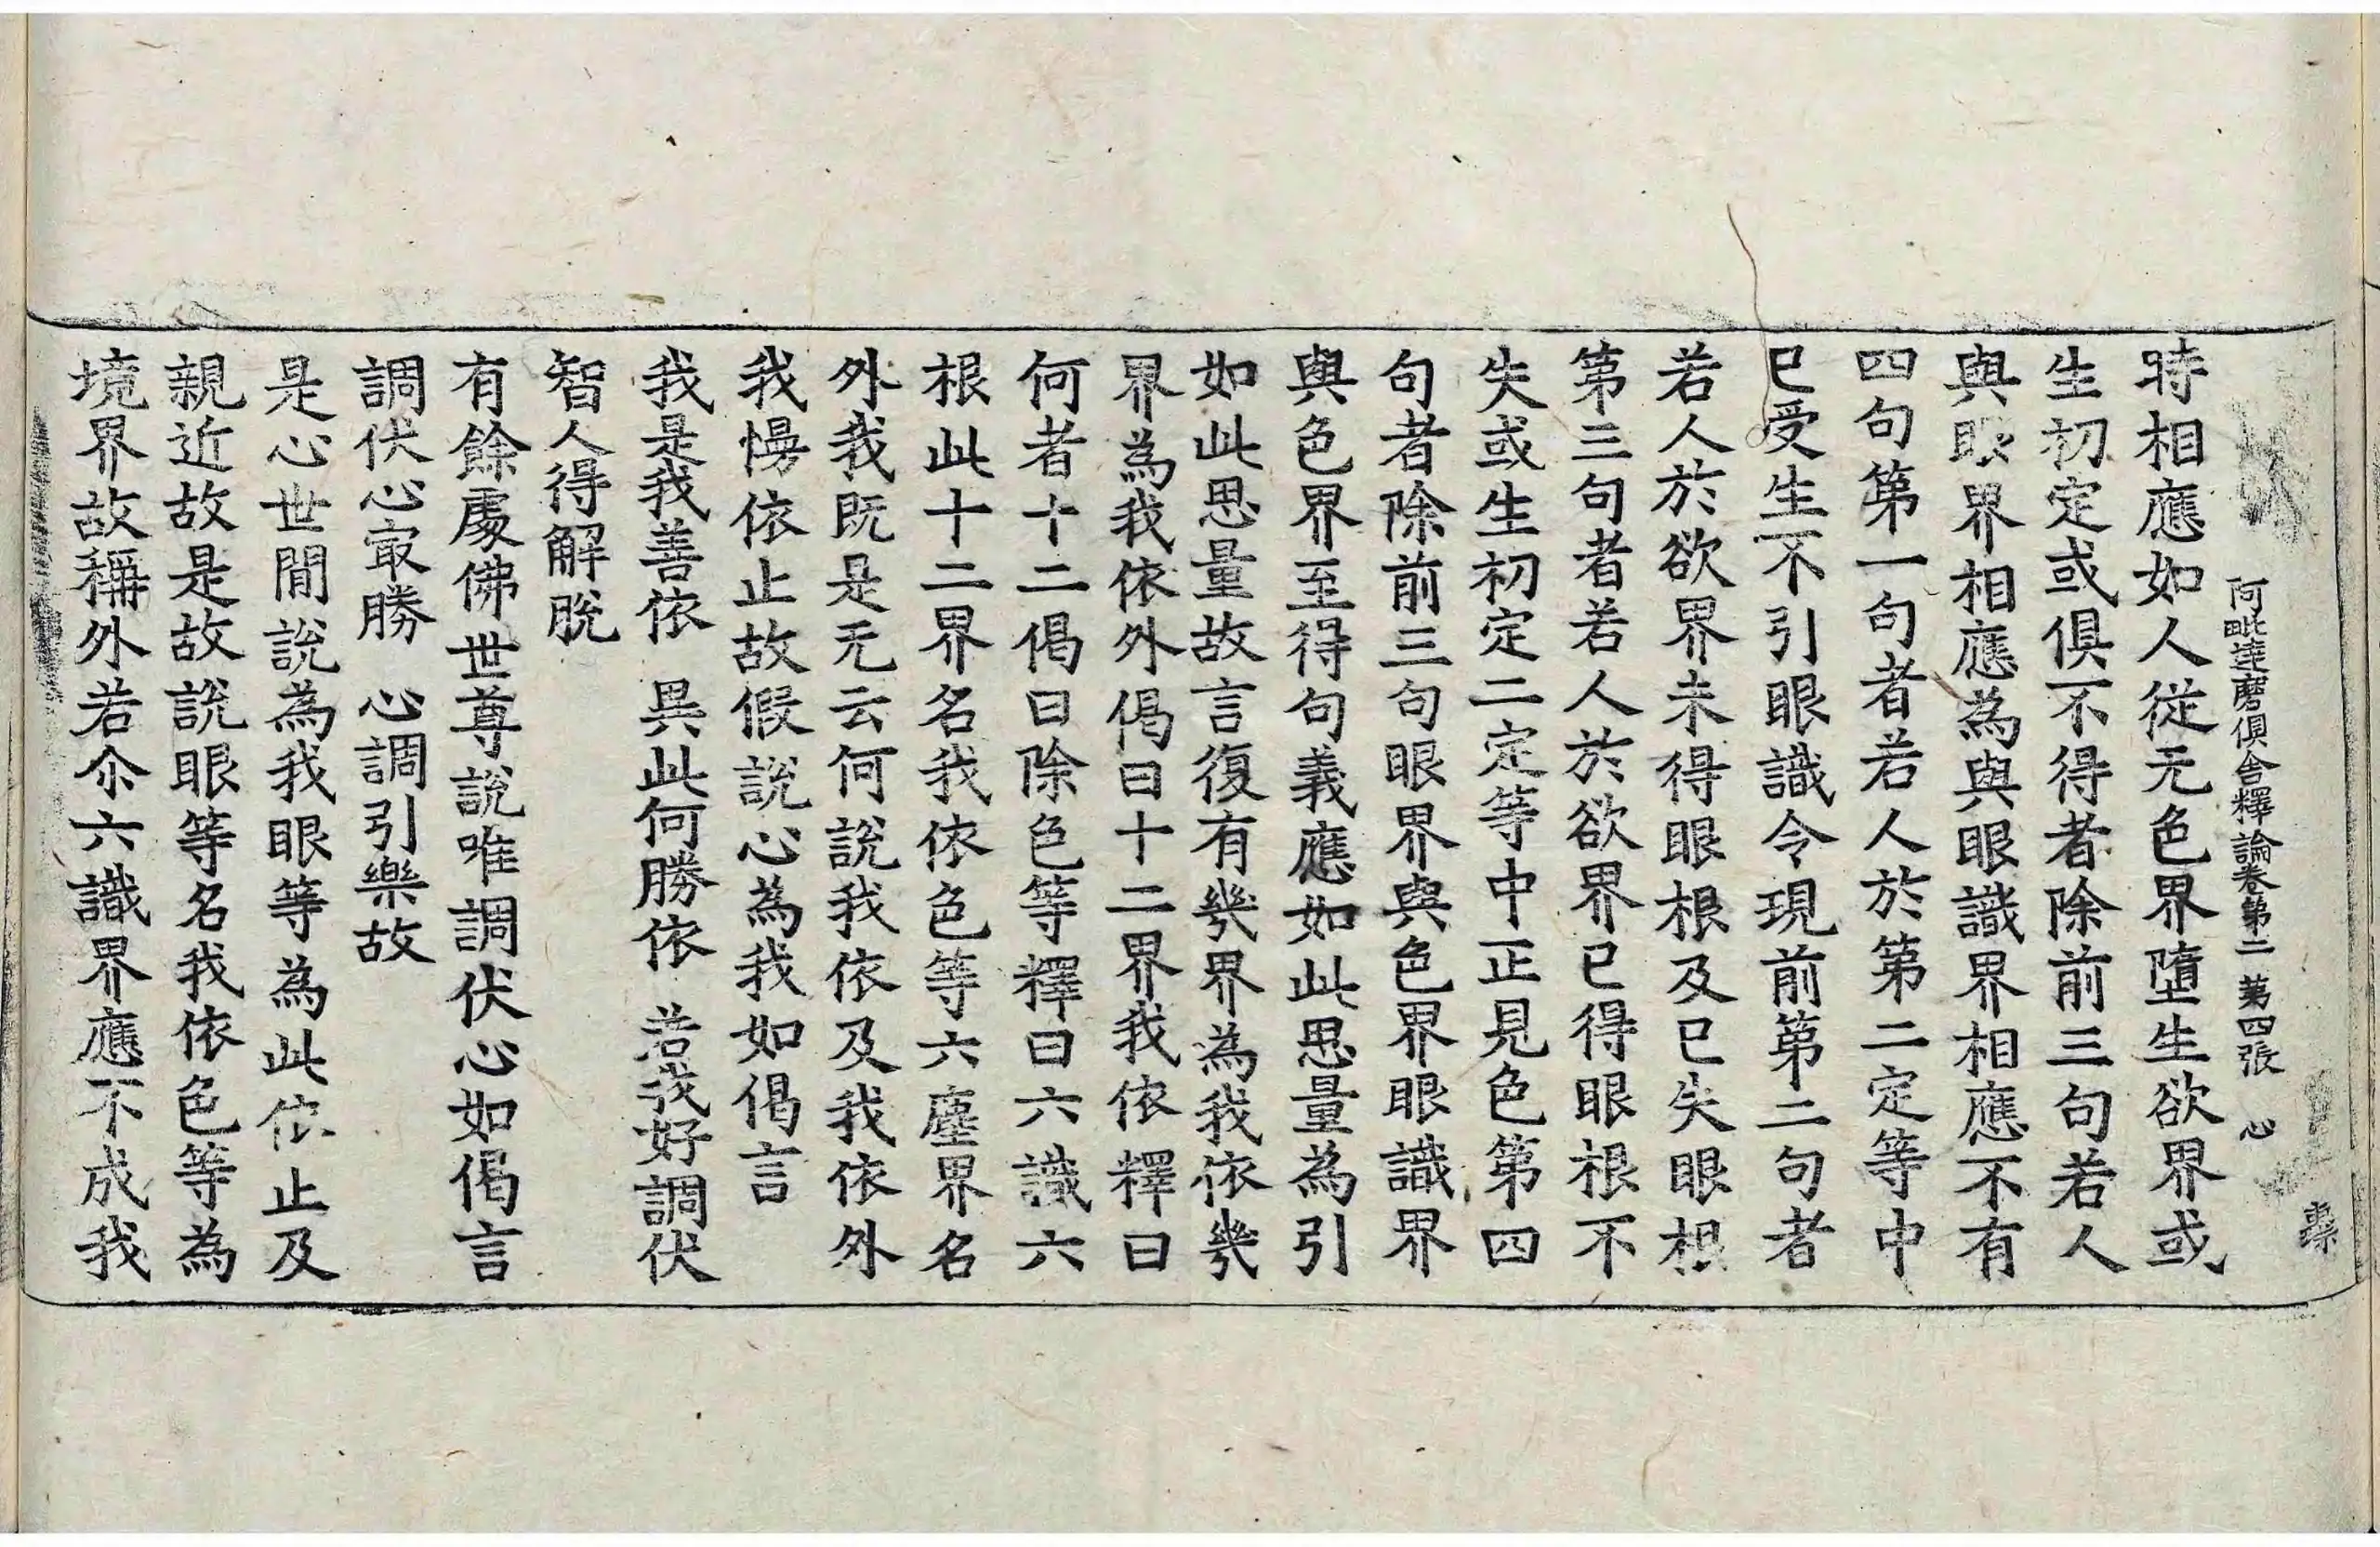 阿毗達磨俱舍釋論卷第二 第四張 心
時相應如人從无色界墮生欲界或
生初定或俱不得者除前三句若人
與眼界相應為與眼識界相應不有
四句第一句者若人於第二定等中
已受生不引眼識令現前第二句者
若人於欲界未得眼根及已失眼根
第三句者若人於欲界已得眼根不
失或生初定二定等中正見色第四
句者除前三句眼界與色界眼識界
與色界至得句義應如此思量為引
如此思量故言復有幾界為我依幾
界為我依外偈曰十二界我依釋曰
何者十二偈曰除色等釋曰六識六
根此十二界名我依色等六塵界名
外我既是无云何說我依及我依外
我慢依止故假說心為我如偈言
我是我善依 異此何勝依 若我好調伏
智人得解脫
有餘處佛世尊說唯調伏心如偈言
調伏心㝡勝 心調引樂故
是心世間說為我眼等為此依止及
親近故是故說眼等名我依色等為
境界故稱外若尒六識界應不成我